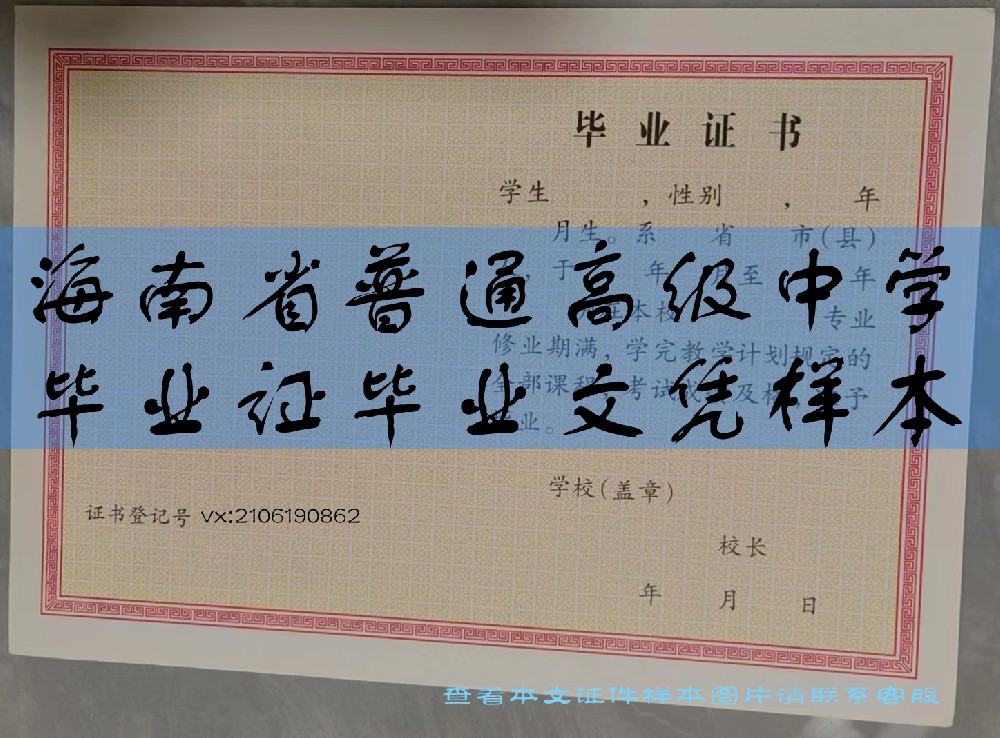 毕业证书
学生 ，性别 ， 年
月生。系 省 市(县)
，于 年 月至 年
在本校 专业
海南省普通高级中学
修业期满，学完教学计划规定的
全部课程，考试成绩及格，准予
毕业。
毕业证毕业文凭样本
学校(盖章)
证书登记号 vx:2106190862
校长
年 月 日
查看本文证件样本图片请联系客服